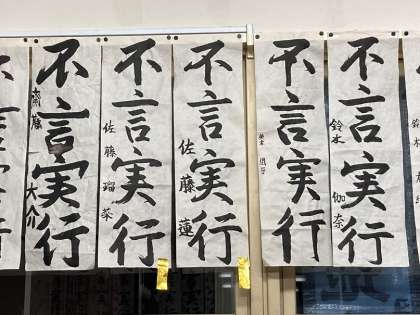 鈴木
不言実行
鈴木 伽奈
不言実行
不言実行
佐藤 蓮
不言実行
佐藤 瑠菜
不言実行
齋藤 大介